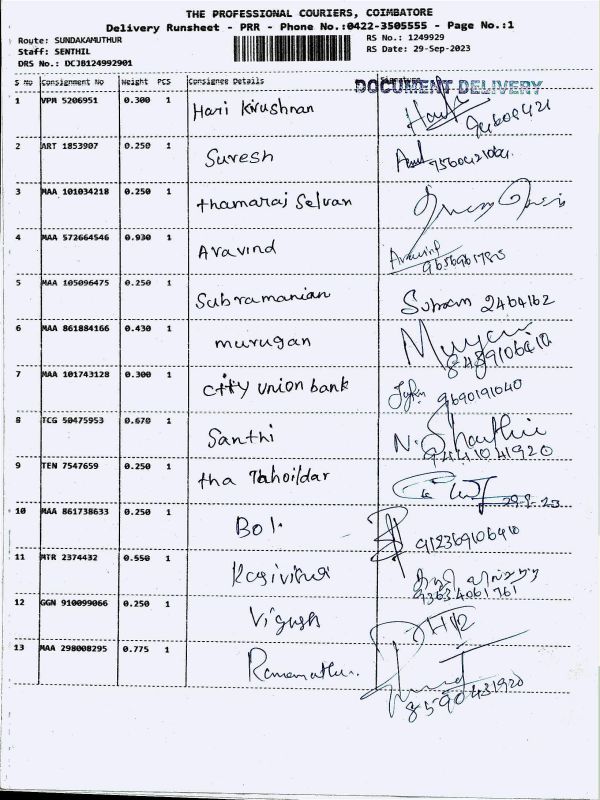 THE PROFESSIONAL COURIERS, COIMBATORE
Delivery Runsheet - PRR - Phone No.:0422-3505555 - Page No.:1
Route: SUNDAKAMUTHUR RS No.: 1249929
Staff: SENTHIL RS Date: 29-Sep-2023
DRS No.: DCJB124992901
S No Consignment No Weight PCS Consignee Details Signature
DOCUMENT DELIVERY
1 VPM 5206951 0.300 1 Hari Krushnan
2 ART 1853907 0.250 1 Suresh
3 MAA 101034218 0.250 1 thamaraj Selvan
4 MAA 572664546 0.930 1 Aravind Aravind
5 MAA 105096475 0.250 1 Subramanian 2464162
6 MAA 861884166 0.430 1 murugan
8489106910
7 MAA 101743128 0.300 1 city union bank 9690191040
8 TCG 50475953 0.670 1 Santhi
9441041920
9 TEN 7547659 0.250 1 tha Tahsildar 29-9-23
10 MAA 861738633 0.250 1
11 MTR 2374432 0.550 1
93634061761
12 GGN 910099066 0.250 1 Vignesh
13 MAA 298008295 0.775 1
8590431920